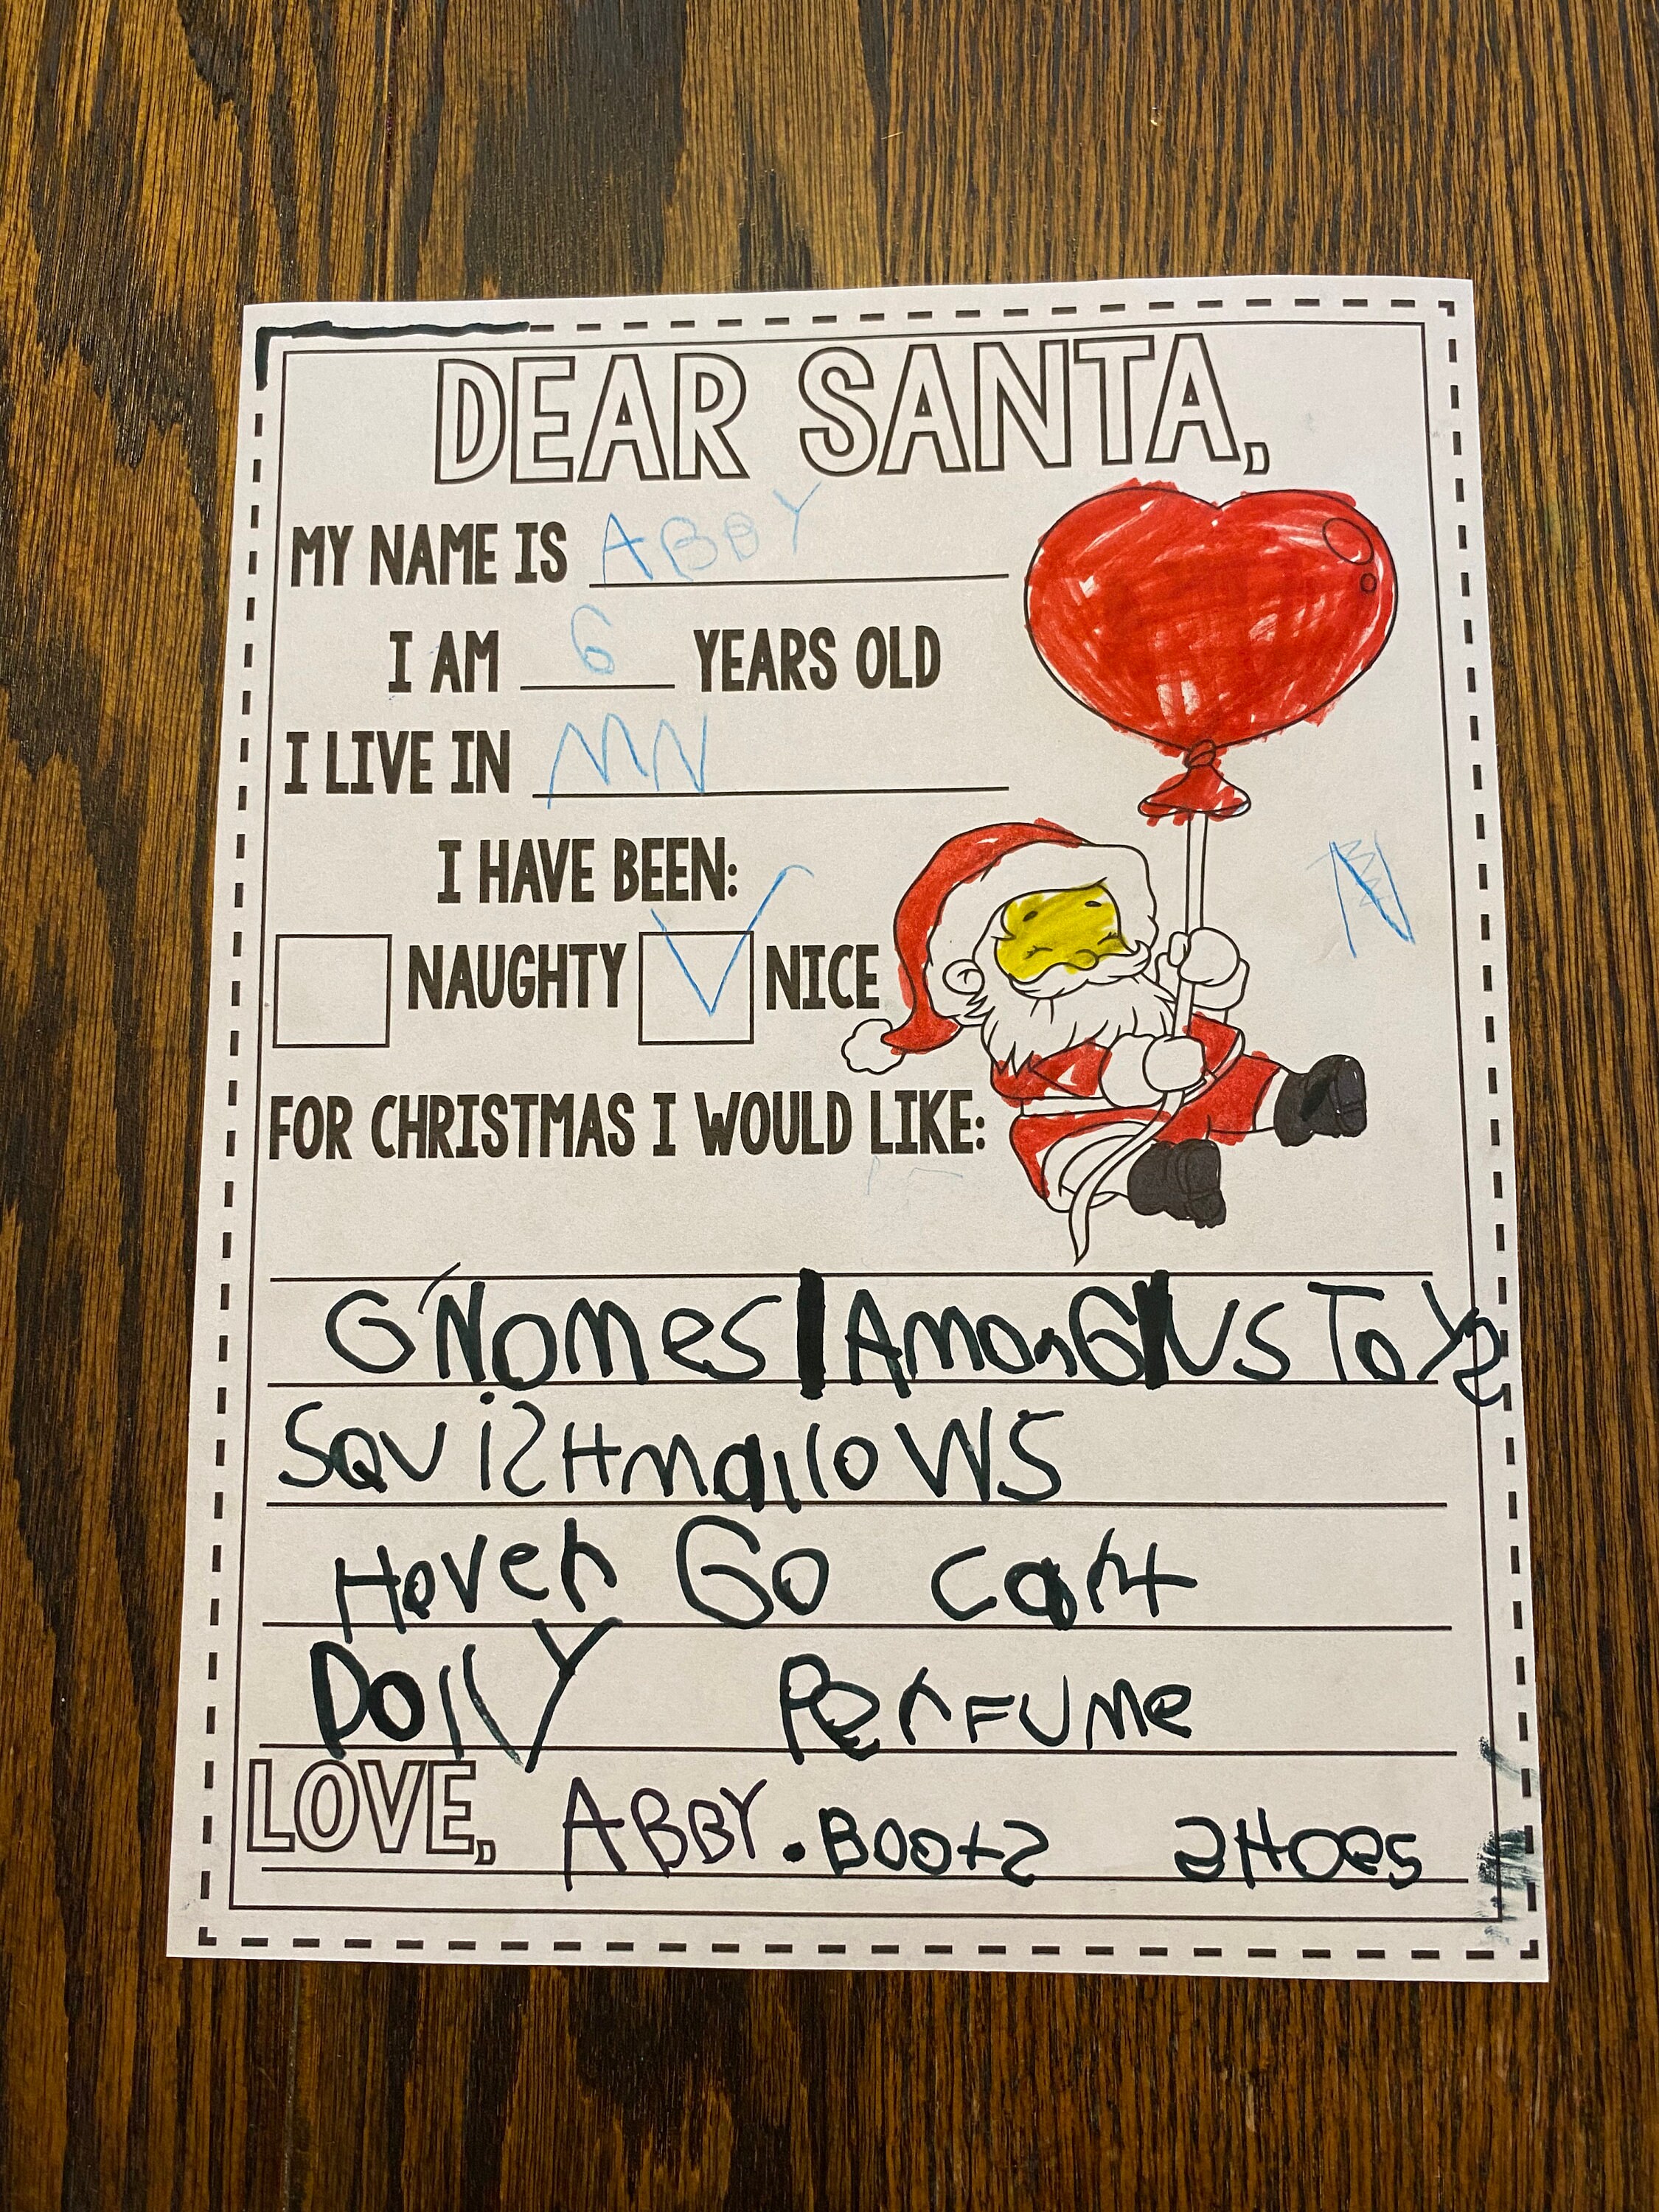 DEAR SANTA,
MY NAME IS ABBY
I AM 6 YEARS OLD
I LIVE IN MN
I HAVE BEEN:
NAUGHTY NICE
N
FOR CHRISTMAS I WOULD LIKE:
GNOMES AMONG US TOYS
SQUISHMALLOWS
Hover Go cart
Dolly Perfume
LOVE, ABBY . Boots SHOES